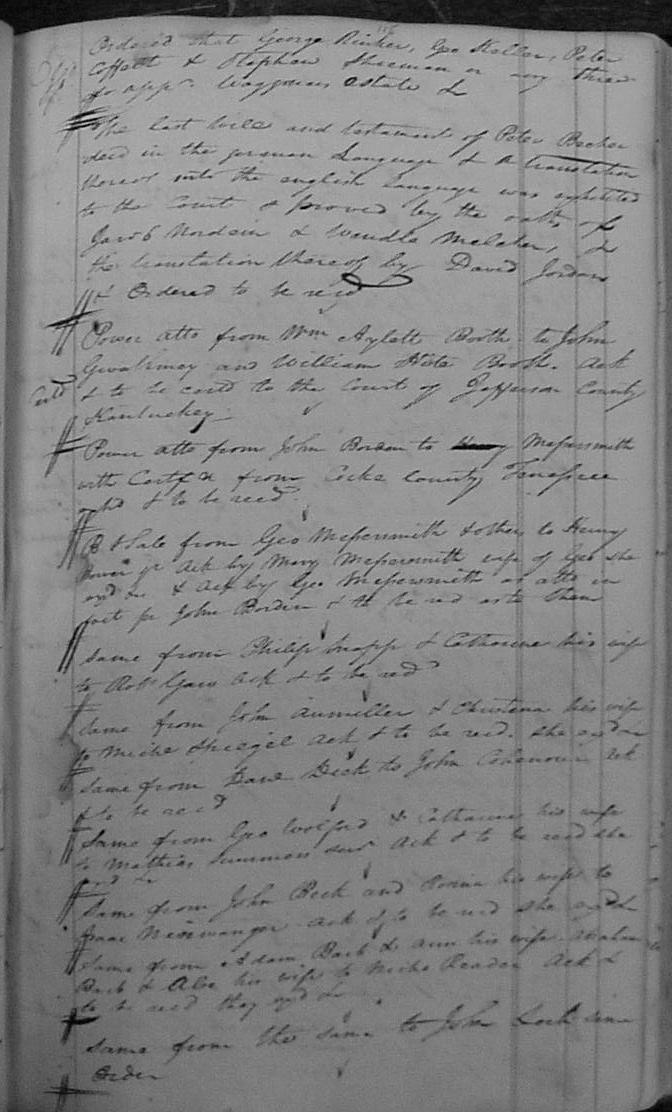 Ordered that George Rinker, Geo Keller, Peter
Coffelt & Stephen or any three
do appr. Waggoners estate &
The last will and testament of Peter Becker
decd in the german Language & A translation
thereof into the english Language was exhibited
to the Court & proved by the oaths of
Jacob Nordein & Wendle Melcher, &
the translation thereof by David Jordan
& Ordered to be recd
Power atto from Wm Aylett Booth to John
Gwathmey and William Booth. Ack
& to be certd to the Court of Jefferson County
Kentuckey
Certd
Power atto from John Borden to Messersmith
with Certf from Cocke County Tennessee
& to be recd
B & Sale from Geo Messersmith & others to Henry
jr Ack by Mary Messersmith wife of Geo she
exd & Ack by Geo Messersmith as atto in
fact for John Borden & to be recd as to them
Same from Philip Snapp & Catharine his wife
to Robt Gaw Ack & to be recd
Same from John Aumiller & Christena his wife
to Miche Spiegel Ack & to be recd. she exd &
Same from Dick to John Ack
& to be recd
Same from Geo Wolford & Catharine his wife
to Mathias Summers Ack & to be recd she
exd &
Same from John Beck and his wife to
Isaac Ack & to be recd she exd &
Same from Adam Barb & Ann his wife Abraham
Barb & his wife to Miche Reader Ack &
to be recd they exd &
Same from the same to John Lock same
Order